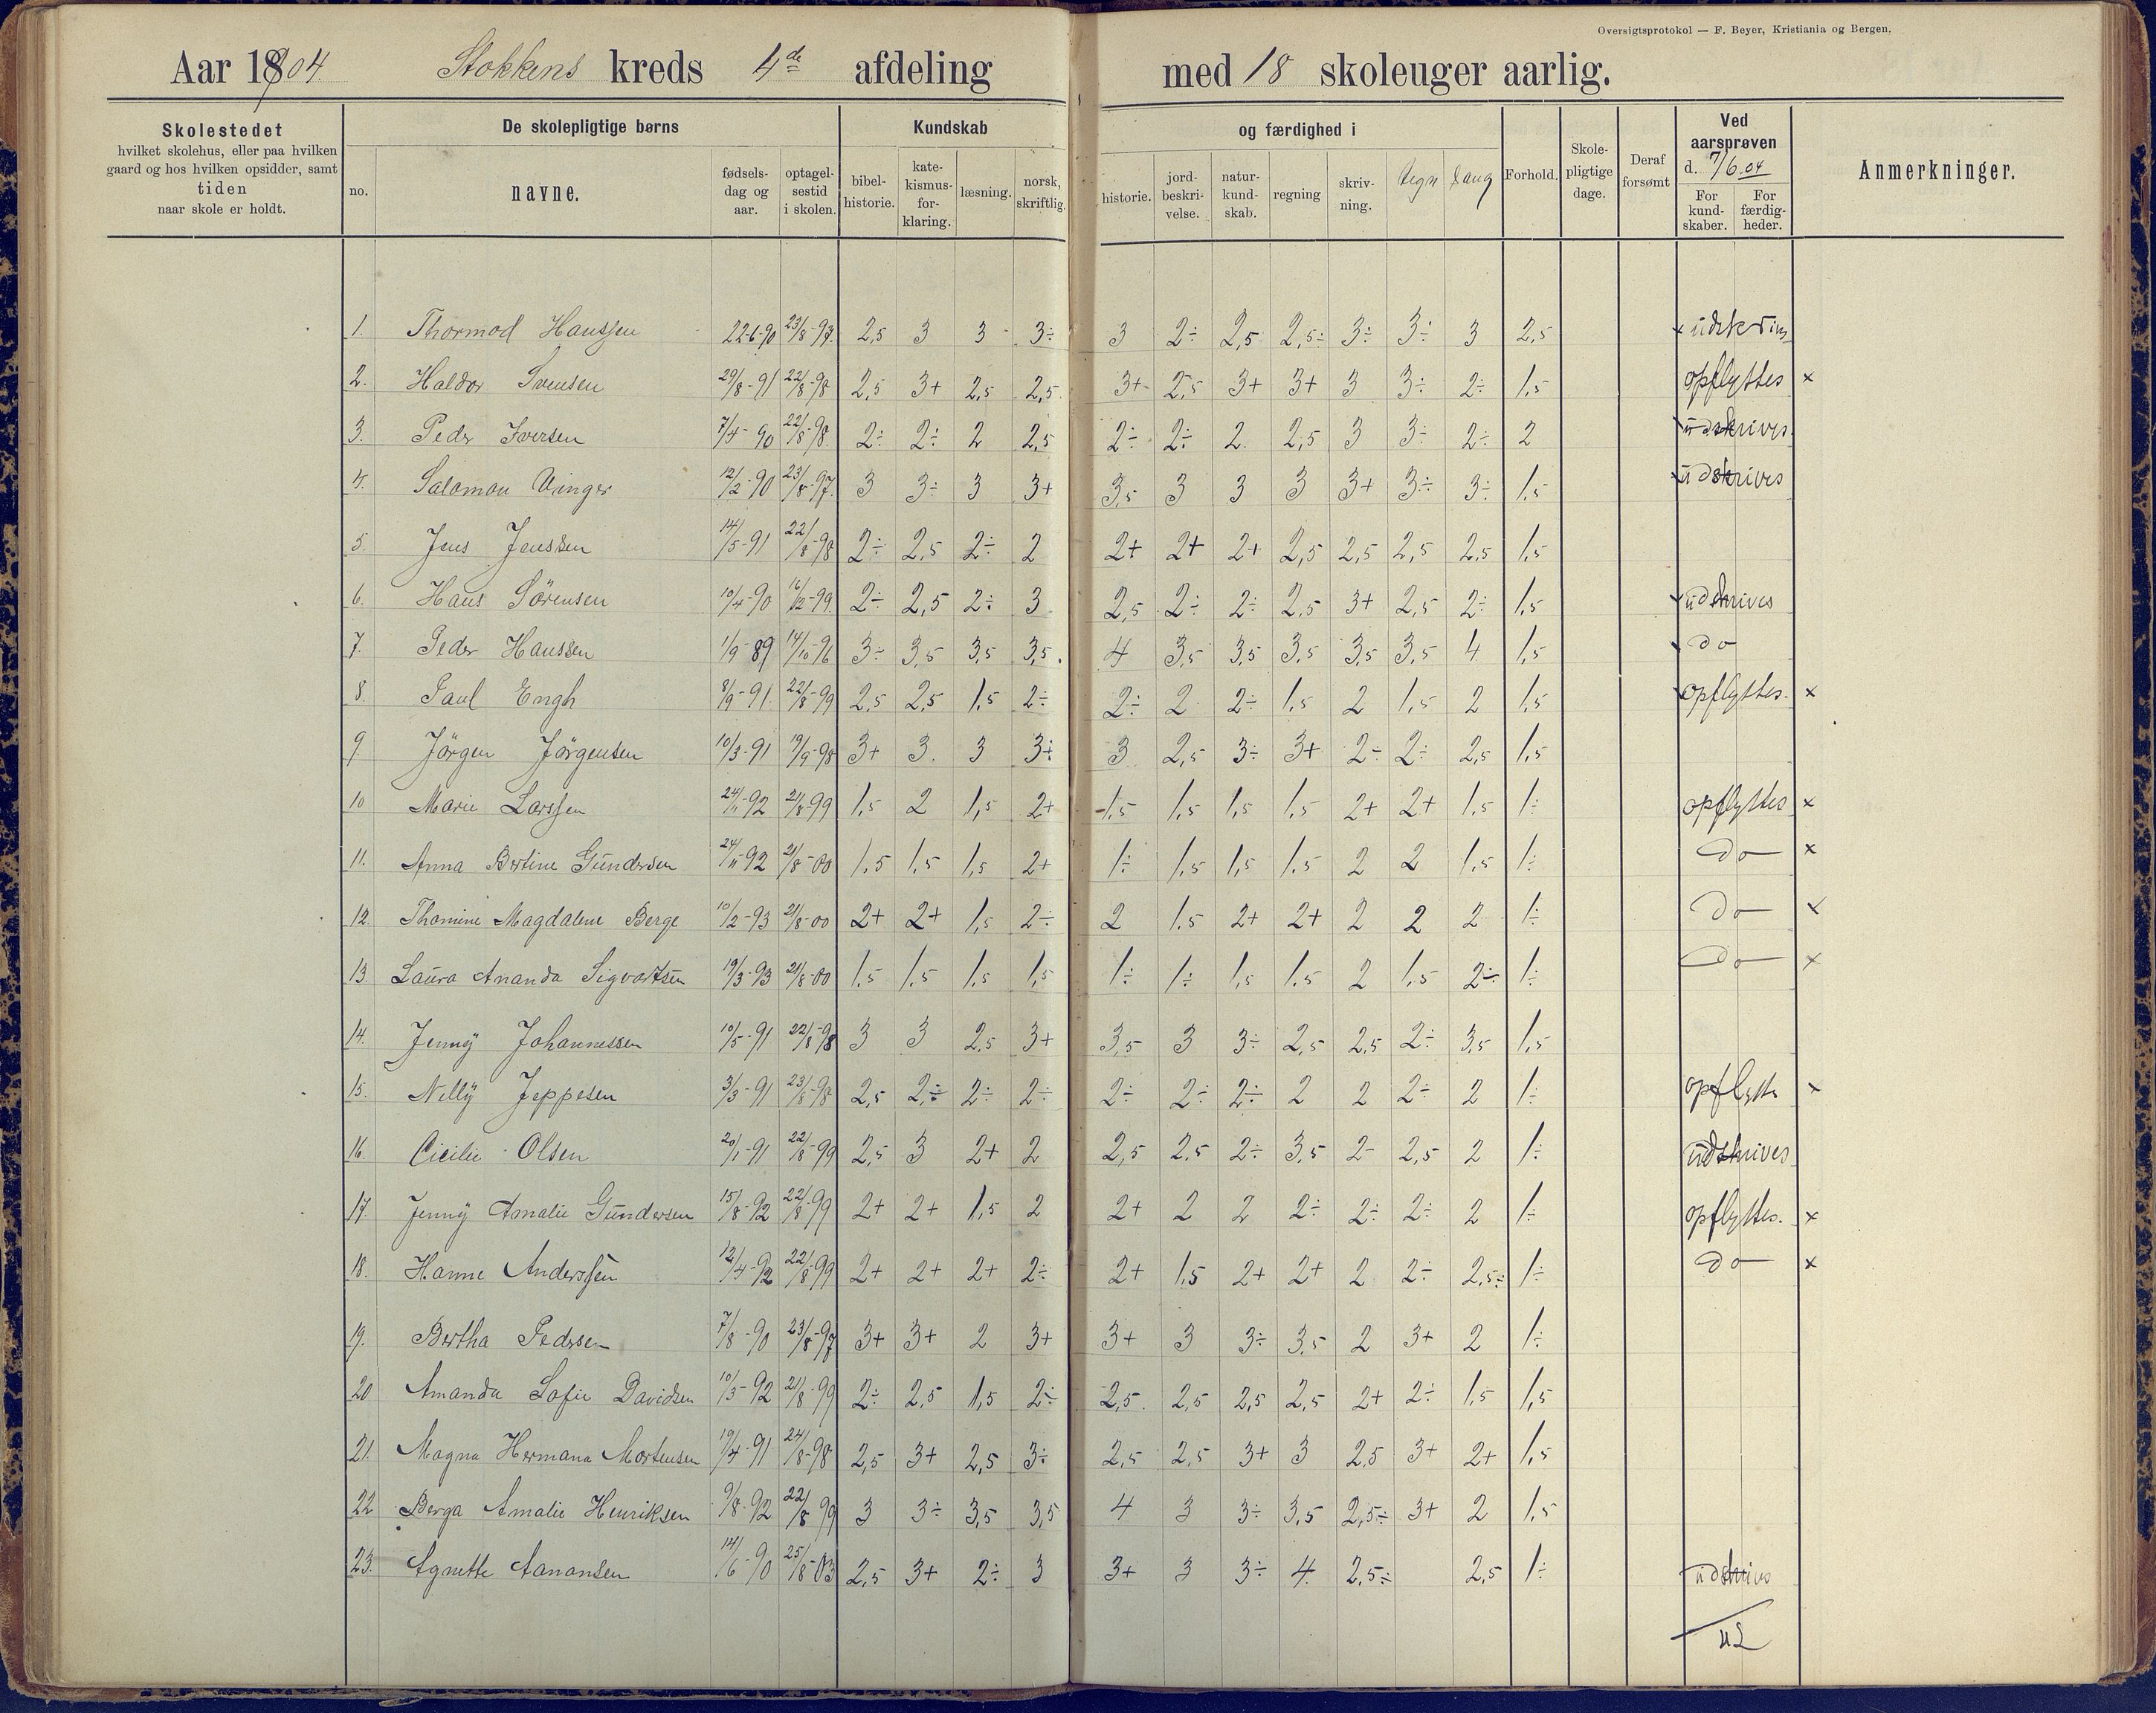 Oversigtsprotokol — F. Beyer, Kristiania og Bergen.
Aar 1904 Stokkens kreds 4de afdeling med 18 skoleuger aarlig.
Skolestedet
hvilket skolehus, eller paa hvilken
gaard og hos hvilken opsidder, samt
tiden
naar skole er holdt.
De skolepligtige børns
no. navne. fødsels-dag og aar. optagel-sestid i skolen.
Kundskab og færdighed i
bibel-historie. kate-kismus-for-klaring. læsning. norsk, skriftlig. historie. jord-beskri-velse. natur-kund-skab. regning skriv-ning. tegn Sang
Forhold. Skole-pligtige dage. Deraf forsømt
Ved aarsprøven d. 7/6.04
For kund-skaber. For færdig-heder.
Anmerkninger.
1. Thormod Hanssen 22-6-90 23/8-97. 2,5 3 3 3÷ 3 2÷ 2,5 2,5÷ 3÷ 3÷ 3 2,5
2. Haldor Svensen 29/8-91 22/8-98 2,5 3+ 2,5 2,5 3+ 2,5 3+ 3+ 3 3÷ 2÷ 1,5 opflyttes x
3. Peder Iversen 7/4-90 22/8-98. 2÷ 2÷ 2 2,5 2÷ 2÷ 2 2,5 3 3÷ 2÷ 2 udskrives.
4. Salomon Vinger 12/2-90 23/8-97. 3 3÷ 3 3+ 3,5 3 3 3 3+ 3÷ 3÷ 1,5 udskrives
5. Jens Jenssen 14/5-91 22/8-98 2÷ 2,5 2÷ 2 2+ 2+ 2+ 2,5 2,5 2,5 2,5 1,5
6. Hans Sörensen 10/4-90 16/12-99. 2÷ 2,5 2÷ 3 2,5 2÷ 2÷ 2,5 3+ 2,5 2÷ 1,5 udskrives
7. Peder Hanssen 1/9-89 14/10-96 3÷ 3,5 3,5 3,5. 4 3,5 3,5 3,5 3,5 3,5 4 1,5 do
8. Paul Engh 8/9-91. 22/8-99 2,5 2,5 1,5 2÷ 2÷ 2 2÷ 1,5 2 1,5 2 1,5 opflyttes. x
9. Jörgen Jörgensen 10/3-91 19/9-98 3+ 3. 3 3÷ 3 2,5 3÷ 3+ 2÷ 2÷ 2,5 1,5
10 Marie Larssen 24/11-92 21/8-99 1,5 2 1,5 2+ 1,5 1,5 1,5 1,5 2+ 2+ 1,5 1÷ opflyttes x
11. Anna Bertine Gundersen 24/11-92 21/8-00 1,5 1,5 1,5 2+ 1÷ 1,5 1,5 1,5 2 2 1,5 1÷ do x
12. Thomine Magdalene Berge 10/2-93 21/8-00 2+ 2+ 1,5 2÷ 2 1.5 2+ 2+ 2 2 2 1÷ do x
13. Laura Ananda Sigvartsen 19/3-93 21/8-00 1,5 1,5 1,5 1,5 1÷ 1÷ 1,5 1,5 2 1,5 2÷ 1÷ do x
14. Jenny Johannessen 10/5-91 22/8-98 3 3 2,5 3+ 3,5 3 3÷ 2,5 2,5 2÷ 3,5 1,5
15. Nelly Jeppesen 3/3-91 23/8-98 2,5 2÷ 2÷ 2÷ 2÷ 2÷ 2÷ 2 2 2÷ 2 1÷ x
16. Cicilie Olsen 20/1-91 22/8-99 2,5 3 2+ 2 2,5 2,5 2÷ 3,5 2- 2,5 2 1÷ udskrives
17. Jenny Amalie Gundersen 15/8-92 22/8-99 2+ 2+ 1,5 2 2+ 2 2 2÷ 2÷ 2÷ 2 1÷ opflyttes. x
18. Hanne Anderssen 12/4-92 22/8-99 2+ 2+ 2+ 2÷ 2+ 1,5 2+ 2+ 2 2÷ 2,5÷ 1÷ do x
19. Bertha Pedersen 7/8-90 23/8-97 3+ 3+ 2 3+ 3+ 3 3÷ 3,5 2 3+ 2 1÷
20 Amanda Sofie Davidsen 10/3-92 21/8-99 2÷ 2,5 1,5 2÷ 2,5. 2,5 2,5 2,5 2+ 2÷ 1,5 1,5
21. Magna Hermana Mortensen 19/4-91 24/8-98 2,5 3+ 2,5 3÷ 2,5 2,5 3+ 3 2,5 3+ 2+ 1,5
22 Berga Amalie Henriksen 9/8-92 22/8-99 3 3÷ 3,5 3,5 4 3 3÷ 3,5 2,5÷ 3+ 2 1,5
23. Agnette Aanonsen 14/6-90 25/8-03 2,5 3+ 2÷ 3 3+ 3 3÷ 4 2,5÷ 2,5 1÷ udskrives